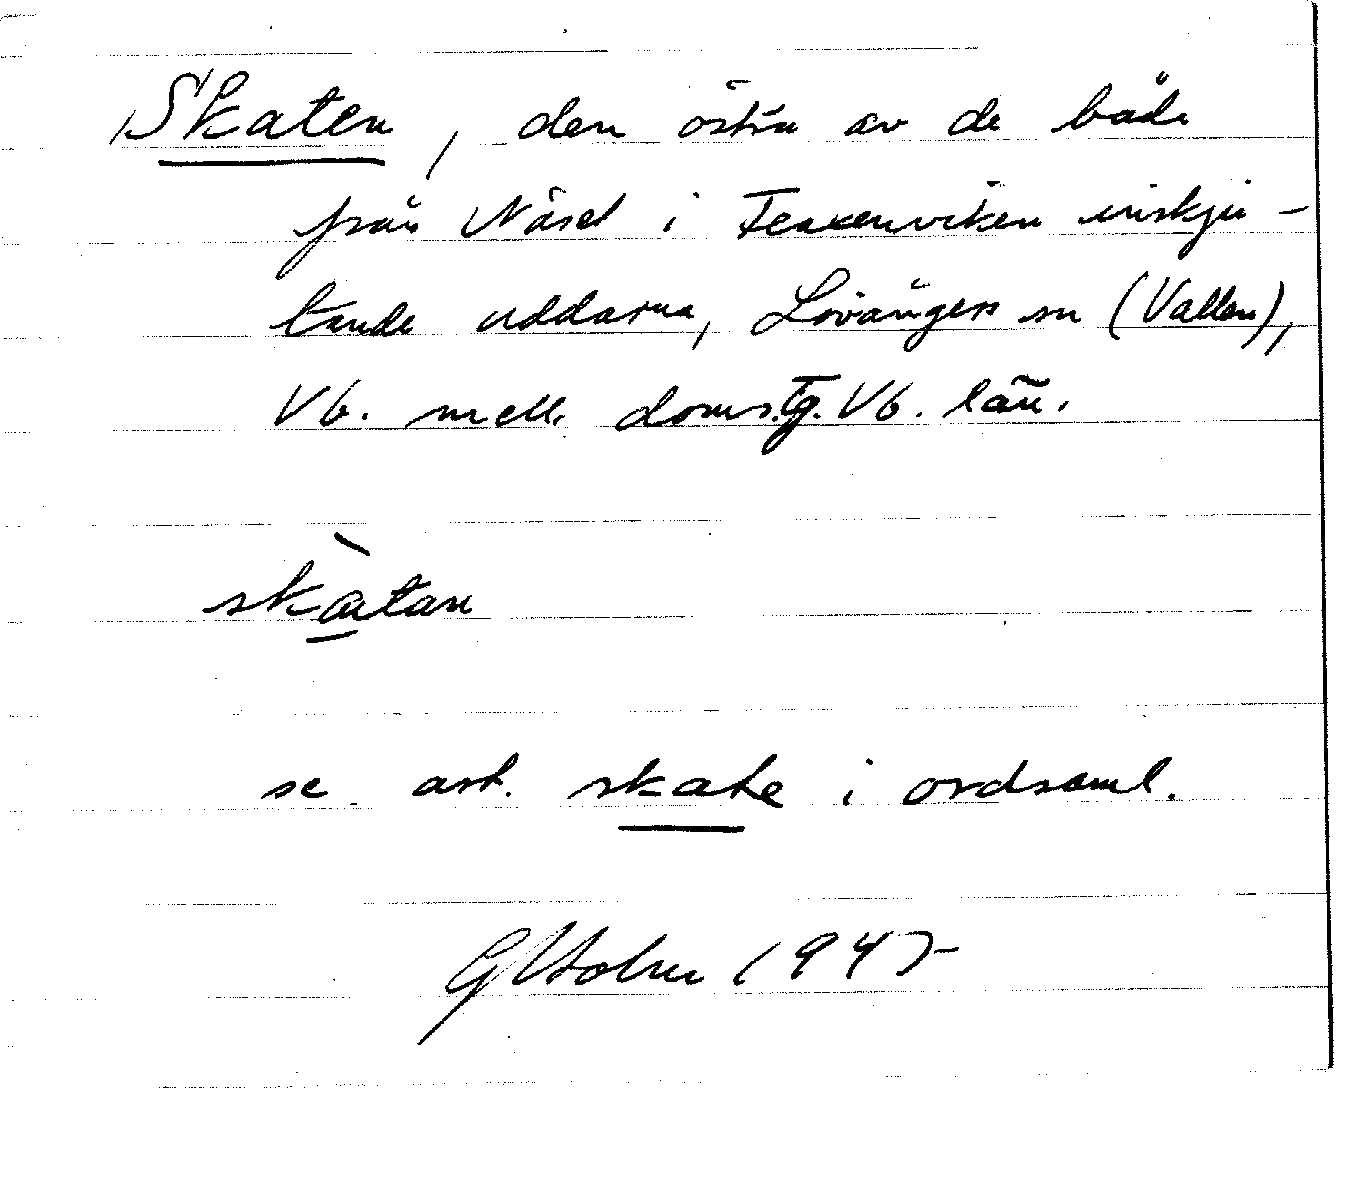 Skaten, den östra av de båda
från Näset i inskju-
tande uddarna, Lövångers sn (Vallen),
Vb. mell. doms.tg. Vb. län.
skàtan
se art. skate i ordsaml.
G Holm 1947